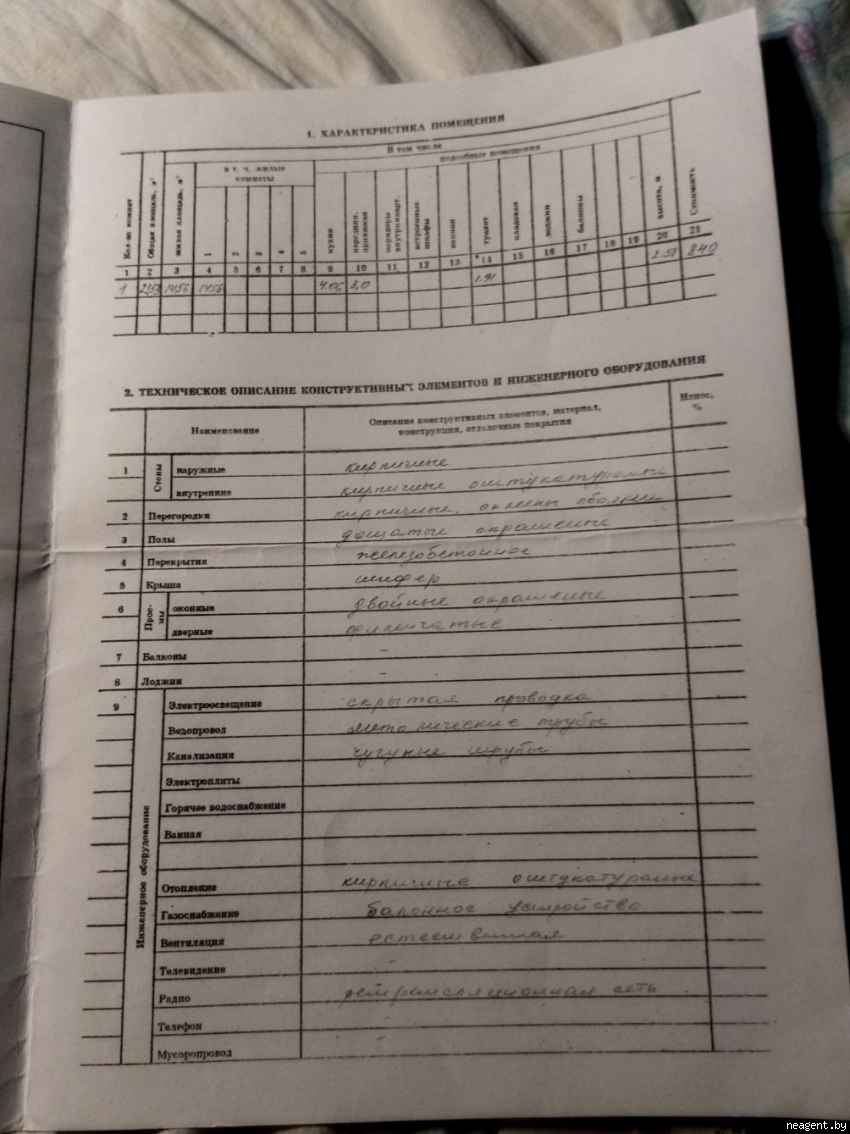 1. ХАРАКТЕРИСТИКА ПОМЕЩЕНИЯ
Кол-во комнат
Общая площадь, м²
жилая площадь, м²
В том числе
в т. ч. жилые комнаты
подсобные помещения
1 2 3 4 5
кухня
коридоры внутрикварт.
встроенные шкафы
туалет
кладовая
лоджии
балконы
высота, м
Стоимость
1 2 3 4 5 6 7 8 9 10 11 12 13 14 15 16 17 18 19 20 21
1 1456 1456 4.06 1.91 2.51 840
2. ТЕХНИЧЕСКОЕ ОПИСАНИЕ КОНСТРУКТИВНЫХ ЭЛЕМЕНТОВ И ИНЖЕНЕРНОГО ОБОРУДОВАНИЯ
Наименование
Описание конструктивных элементов, материал,
конструкция, отделочные покрытия
Износ,
%
1 Стены наружные кирпичные
внутренние кирпичные оштукатурены
2 Перегородки кирпичные, оклеены обоями
3 Полы дощатые окрашенные
4 Перекрытия железобетонное
5 Крыша шифер
6 Прое-мы оконные двойные окрашенные
дверные филенчатые
7 Балконы -
8 Лоджии -
9 Инженерное оборудование
Электроосвещение скрытая проводка
Водопровод металические трубы
Канализация чугуные трубы
Электроплиты
Горячее водоснабжение
Ванная
Отопление кирпичные оштукатурены
Газоснабжение балонное устройство
Вентиляция естественная
Телевидение -
Радио сеть
Телефон -
Мусоропровод
neagent.by